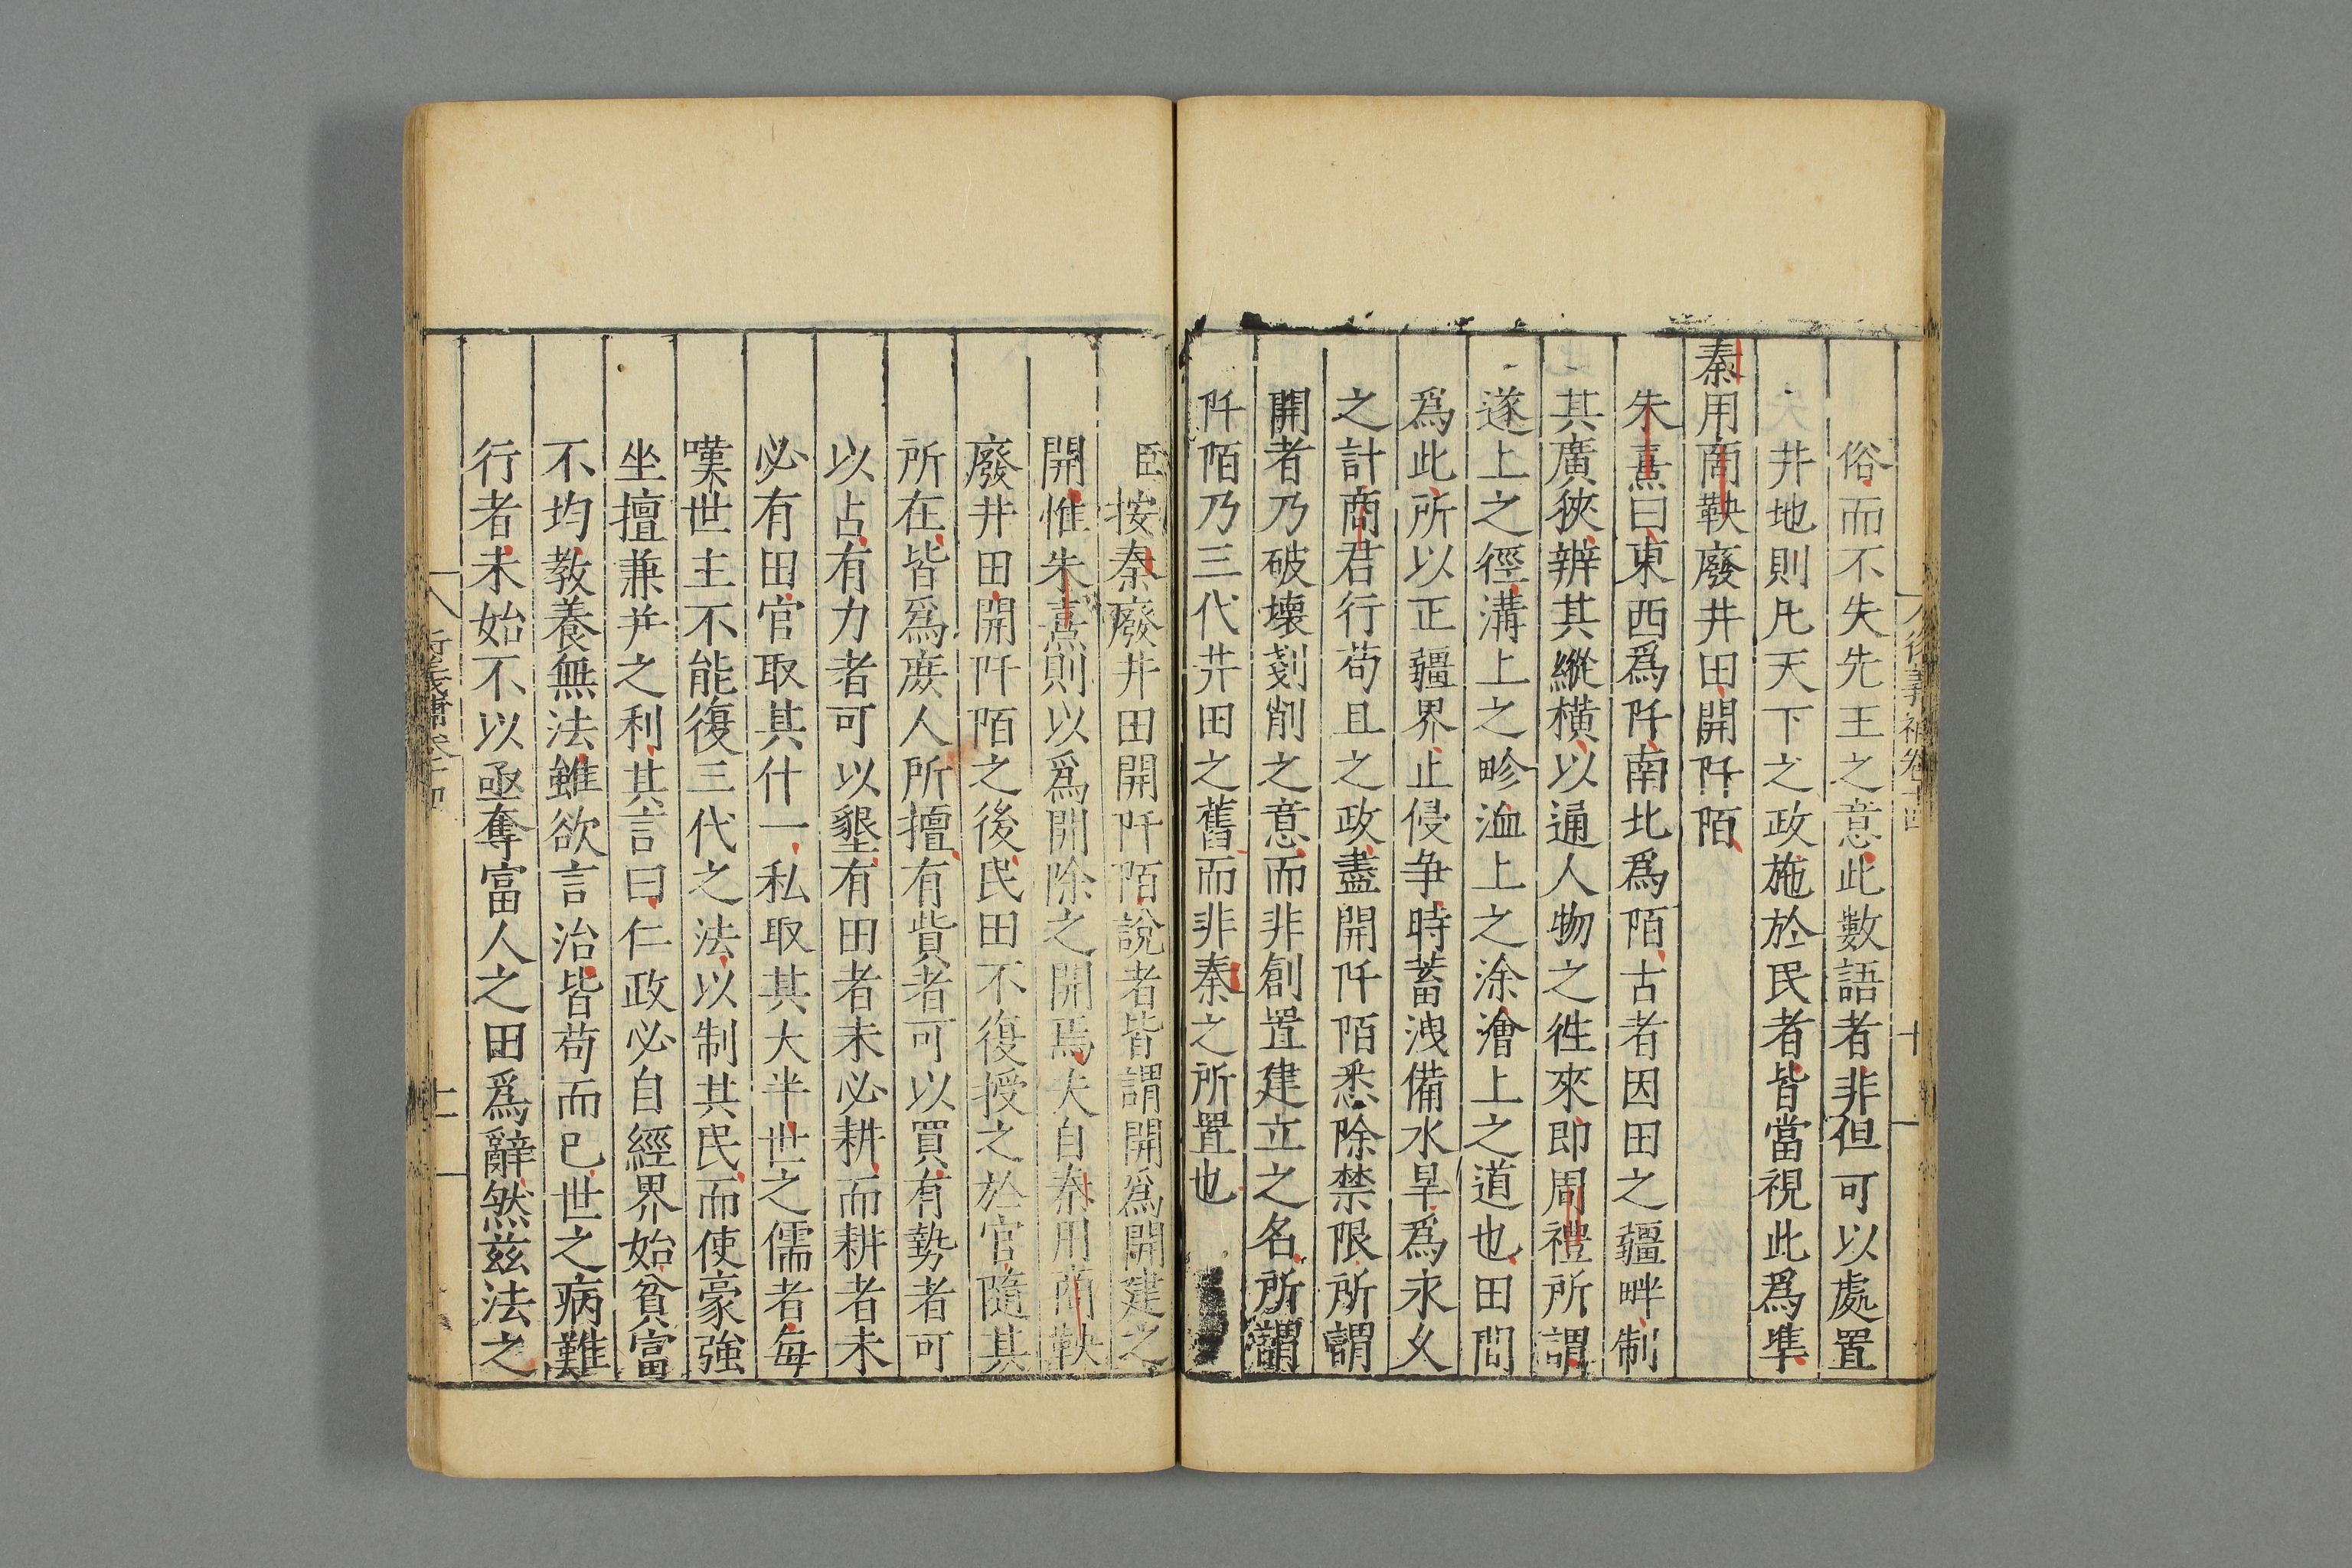 俗而不失先王之意此數語者非但可以處置
井地則凡天下之政施於民者皆當視此爲準
秦用商鞅廢井田開阡陌
朱熹曰東西爲阡南北爲陌古者因田之疆畔制
其廣狹辨其縱橫以通人物之徃來即周禮所謂
遂上之徑溝上之畛洫上之涂澮上之道也田間
爲此所以正疆界止侵争時蓄洩備水旱爲永乆
之計商君行苟且之政盡開阡陌悉除禁限所謂
開者乃破壞剗削之意而非創置建立之名所謂
阡陌乃三代井田之舊而非秦之所置也
臣按秦廢井田開阡陌說者皆謂開爲開建之
開惟朱熹則以爲開除之開焉夫自秦用商鞅
廢井田開阡陌之後民田不復授之於官隨其
所在皆爲庻人所擅有貲者可以買有勢者可
以占有力者可以墾有田者未必耕而耕者未
必有田官取其什一私取其大半世之儒者每
嘆世主不能復三代之法以制其民而使豪強
坐擅兼并之利其言曰仁政必自經界始貧富
不均教養無法雖欲言治皆苟而已世之病難
行者未始不以亟奪富人之田爲辭然兹法之